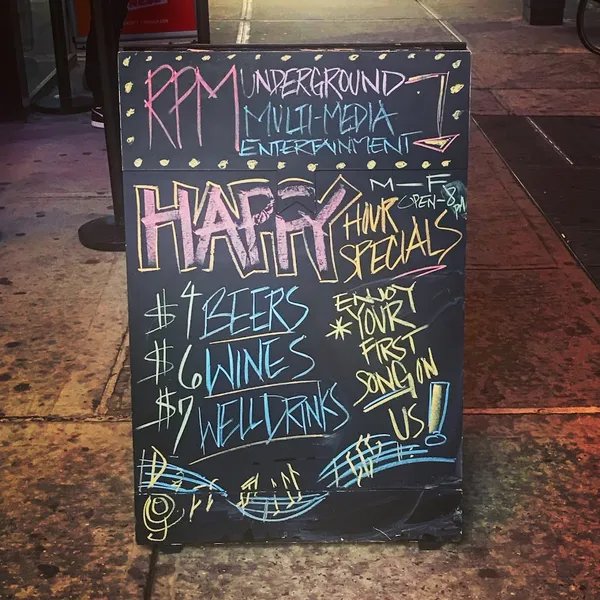 RPM UNDERGROUND
MULTI-MEDIA
ENTERTAINMENT
HAPPY
HOUR
SPECIALS
M-F
OPEN-8PM
$4 BEERS
$6 WINES
$7 WELL DRINKS
ENJOY
*YOUR
FIRST
SONG ON
US!